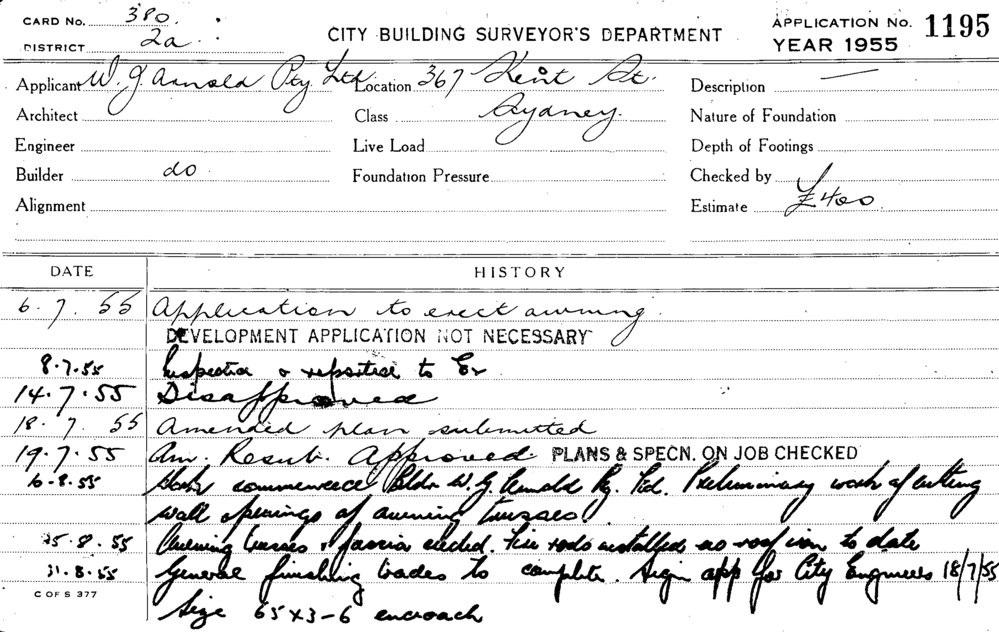 CARD No. 380. CITY BUILDING SURVEYOR'S DEPARTMENT APPLICATION No. 1195
DISTRICT 2a YEAR 1955
Applicant W. G. Arnold Pty Ltd Location 367 Kent St. Description —
Architect Class Sydney. Nature of Foundation
Engineer Live Load Depth of Footings
Builder do Foundation Pressure Checked by
Alignment Estimate £400
DATE HISTORY
6.7.55 Application to erect awning.
DEVELOPMENT APPLICATION NOT NECESSARY
8.7.55 Inspected & reported to
14.7.55 Disapproved
18.7.55 Amended plan submitted
19.7.55 Am. Resub. Approved PLANS & SPECN. ON JOB CHECKED
6.8.55 Work commenced Bldr W. G. Arnold Pty. Ltd. Preliminary work of cutting
wall openings of awning trusses.
25.8.55 Awning trusses & fascia erected. Tie rods installed no roof iron to date
31.8.55 General finishing trades to complete. Sign app for City Engineers 18/7/55
C OF S 377
Size 65 x 3-6 encroach